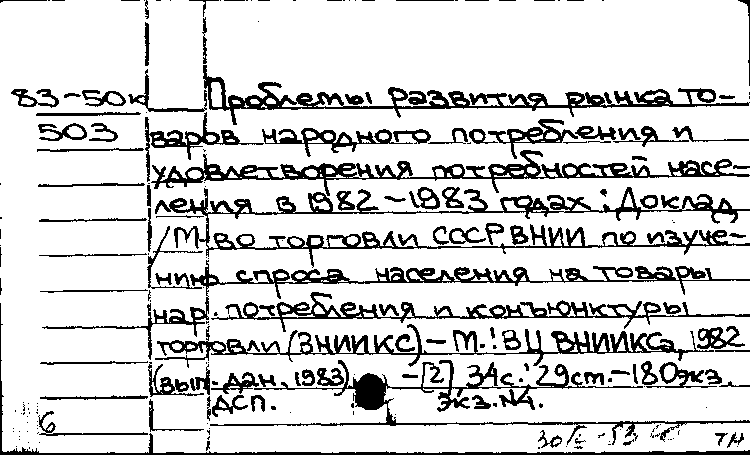 83-50к Проблемы развития рынка то-
503 варов народного потребления и
удовлетворения потребностей насе-
ления в 1982-1983 годах : Доклад
/М-во торговли СССР, ВНИИ по изуче-
нию спроса населения на товары
нар. потребления и конъюнктуры
торговли (ВНИИКС) - М.: ВЦ ВНИИКСа, 1982
(вып. дан. 1983) - [2], 34с.; 29см. - 180экз.
ДСП. Экз. N4.
6
ТН